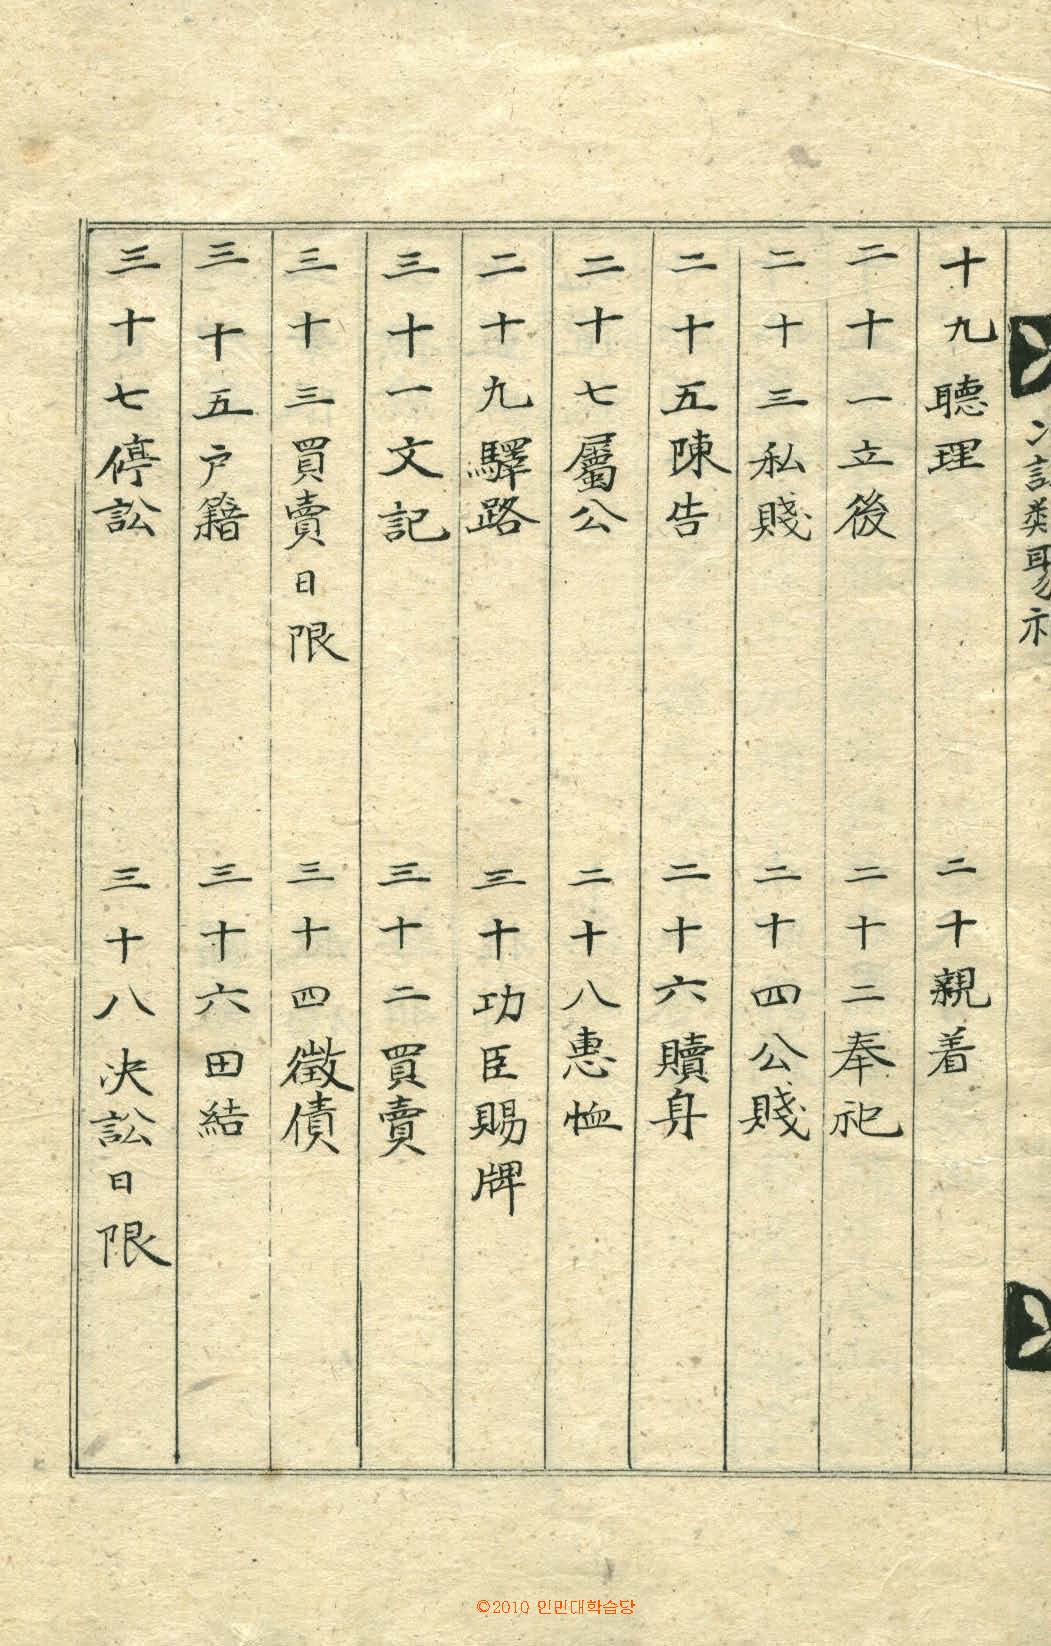 決訟類聚補
十九聽理 二十親着
二十一立後 二十二奉祀
二十三私賤 二十四公賤
二十五陳告 二十六贖身
二十七屬公 二十八惠恤
二十九驛路 三十功臣賜牌
三十一文記 三十二買賣
三十三買賣日限 三十四徵債
三十五户籍 三十六田結
三十七停訟 三十八决訟日限
©2010 인민대학습당